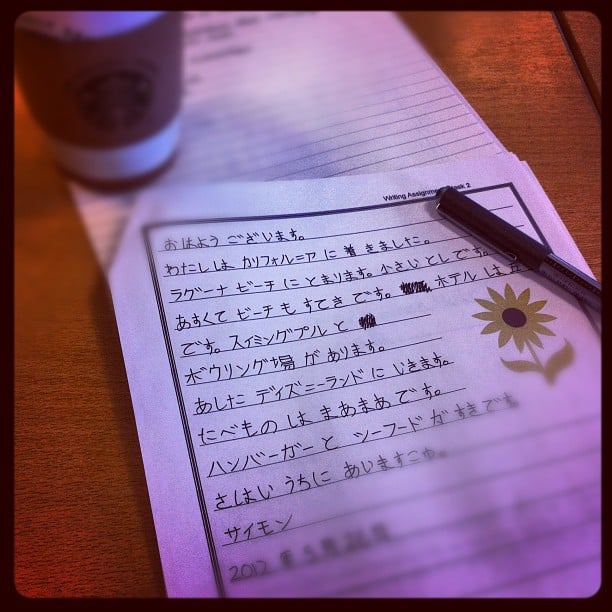 Writing Assignment Week 2
おはよう ございます。
わたしは カリフォルニア に 着 きました。
ラグーナ ビーチ に とまります。小さい としです。
あすくて ビーチ も すてき です。ホテル は
です。スイミングプル と
ボウリング場 が あります。
あした ディズニーランド に いきます。
たべもの は まあまあ です。
ハンバーガー と シーフード が すき です
さはい うちに あいますこね。
サイモン
2012 年 5 月